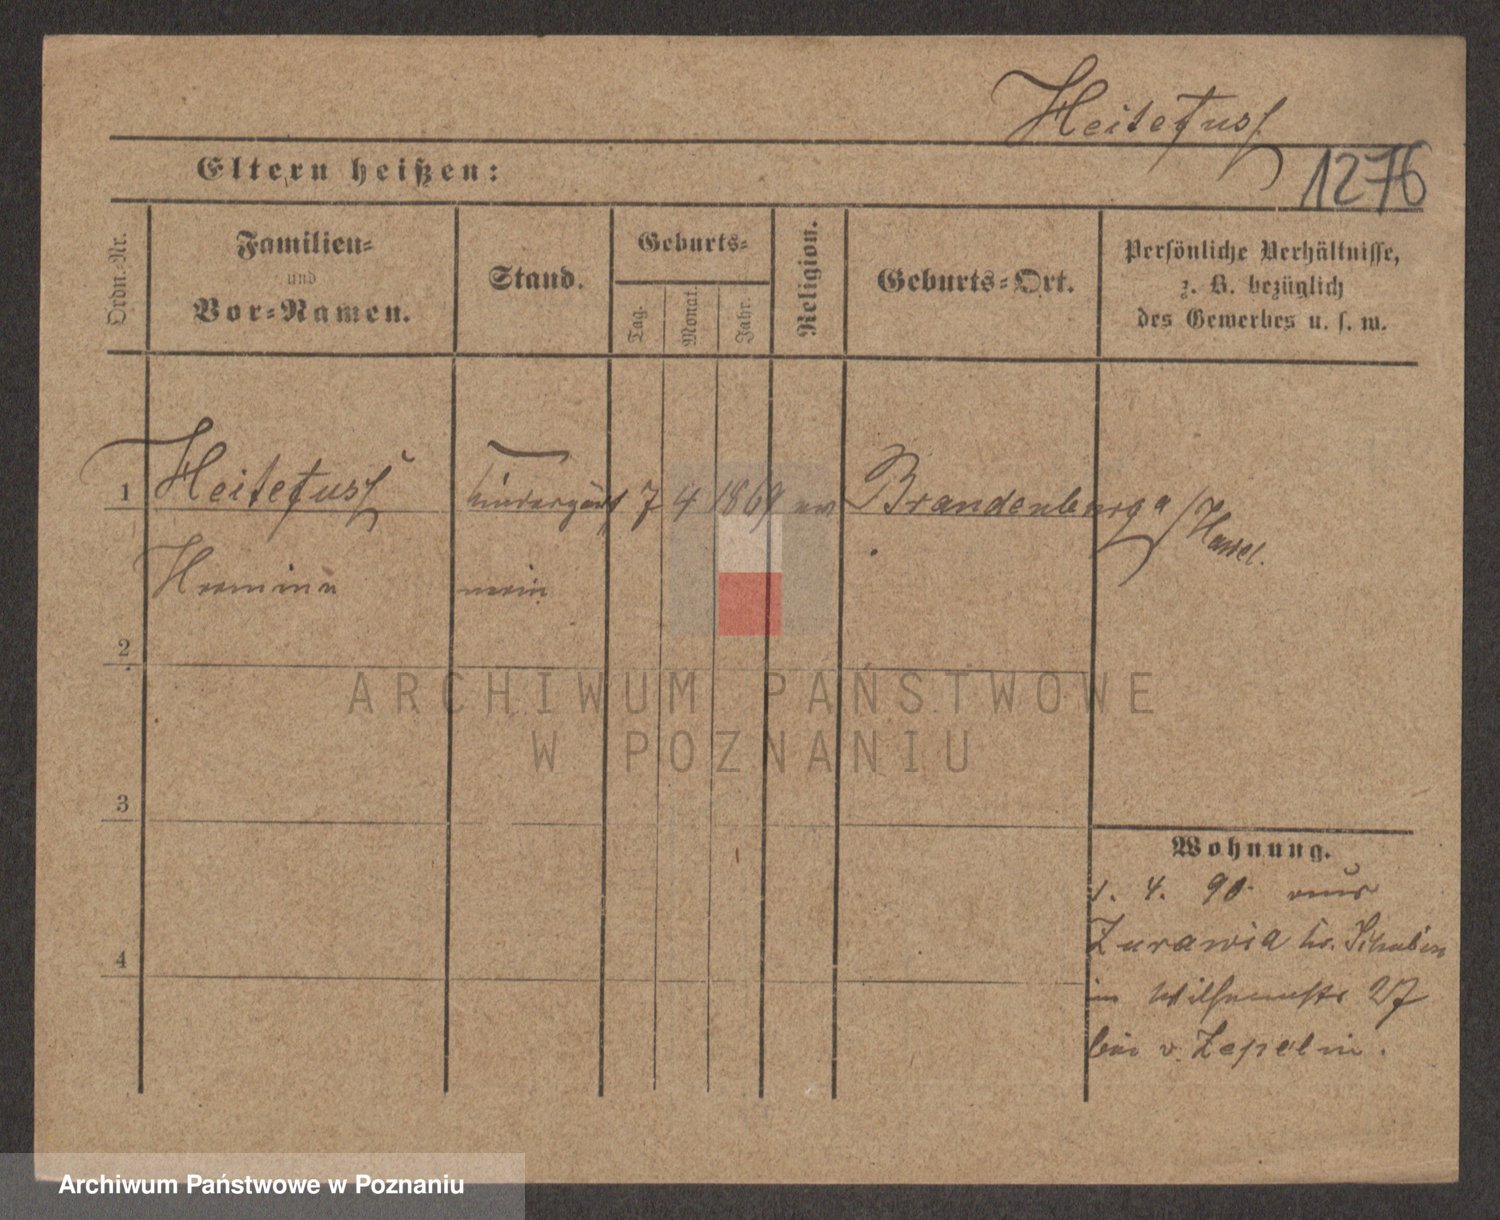 Heitefuss
1276
Eltern heißen:
Ordn.-Nr.
Familien-
und
Vor-Namen.
Stand.
Geburts-
Tag.
Monat.
Jahr.
Religion.
Geburts-Ort.
Persönliche Verhältnisse,
z. B. bezüglich
des Gewerbes u. s. w.
1 Heitefuss Kindergärt 7 4 1869 ev Brandenburg a/Havel.
Hermine nerin
2
ARCHIWUM PAŃSTWOWE
W POZNANIU
3
Wohnung.
1. 4. 90 aus
Zurawia Kr. Schubin
in Wilhelmstr 27
bei v. Zepelin.
4
Archiwum Państwowe w Poznaniu